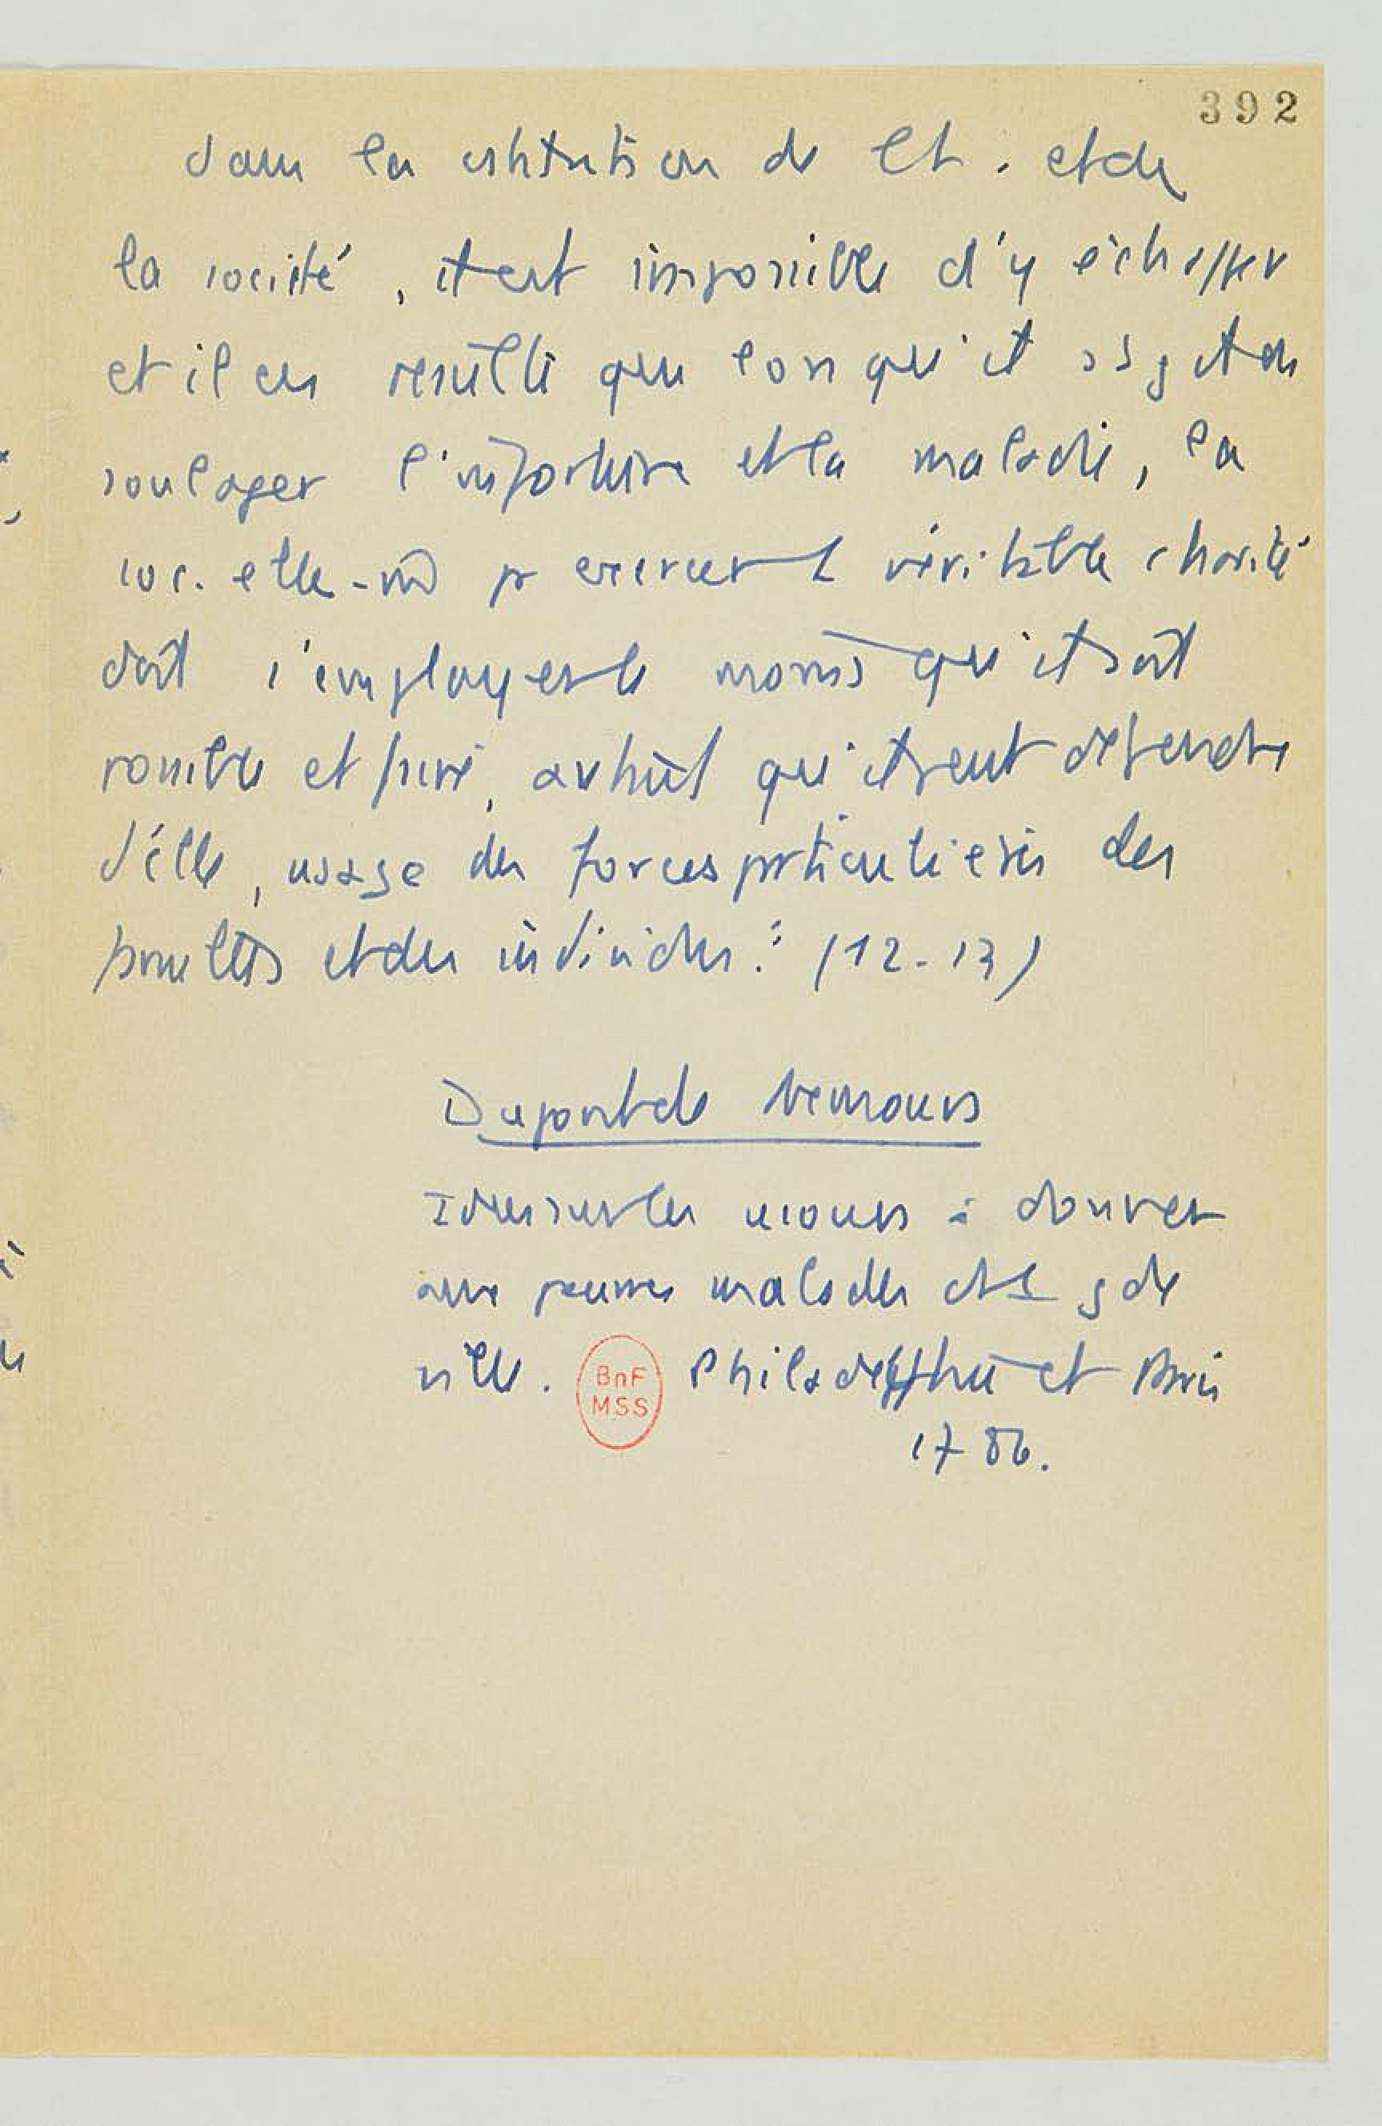 392
dans la constitution de l'h. et de
la société, il est impossible d'y échapper
et il en résulte que lorsqu'il s'agit de
soulager l'infortune et la maladie, la
soc. elle-m̂ pr exercer 1 véritable charité
doit s'employer le moins qu'il soit
possible et faire, autant qu'il peut dépendre
d'elle, usage des forces particulières des
familles et des individus." (12-13)
Dupont de Nemours
Idées sur les secours à donner
aux pauvres malades ds 1 gde
ville. Philadelphie et Paris
1786.
BnF
MSS